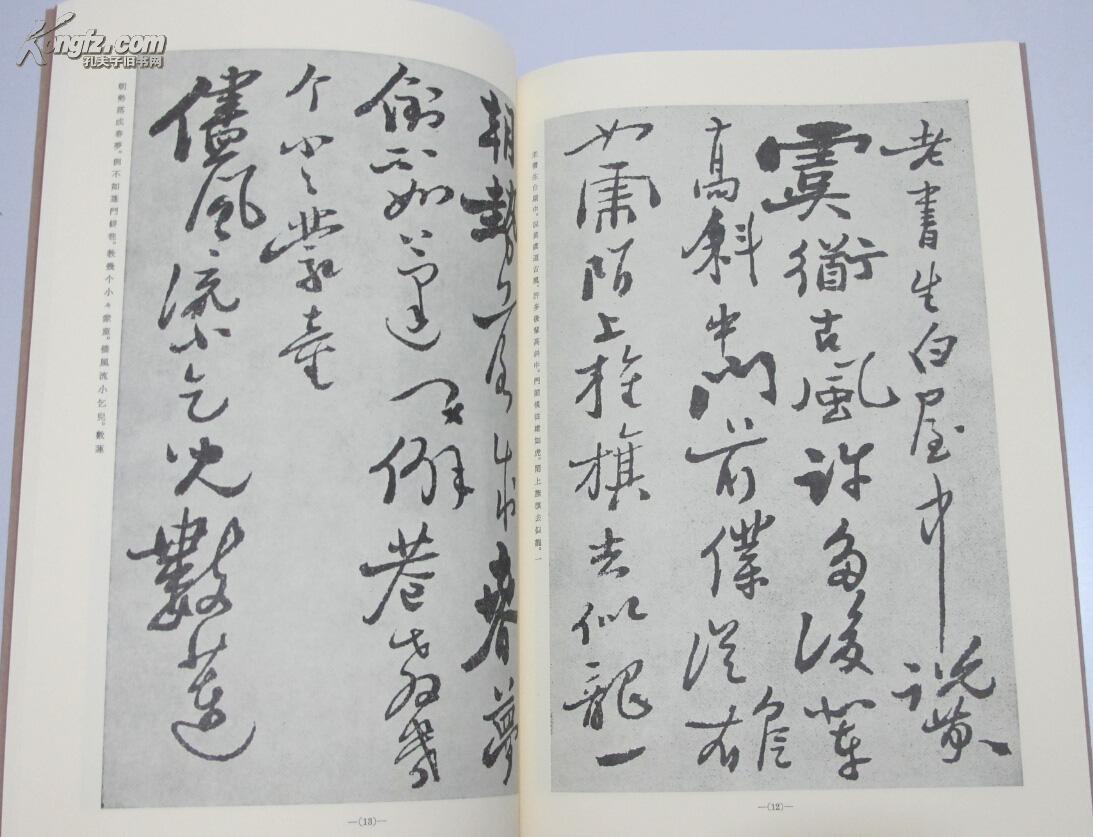 老書生白屋中說黃
虞衜古風許多後輩
高科中門前僕從雄
如虎陌上旌旗去似龍一
老書生白屋中。說黃虞道古風。許多後輩高科中。門前僕從雄如虎。陌上旌旗去似龍。一
—(12)—
朝勢落成春夢
倒不如蓬門僻巷教幾
个小々蒙童
儘風流小乞兒數蓮
朝勢落成春夢。倒不如蓬門僻巷。教幾个小々蒙童。儘風流小乞兒。數蓮
—(13)—
Kongfz.com
孔夫子旧书网